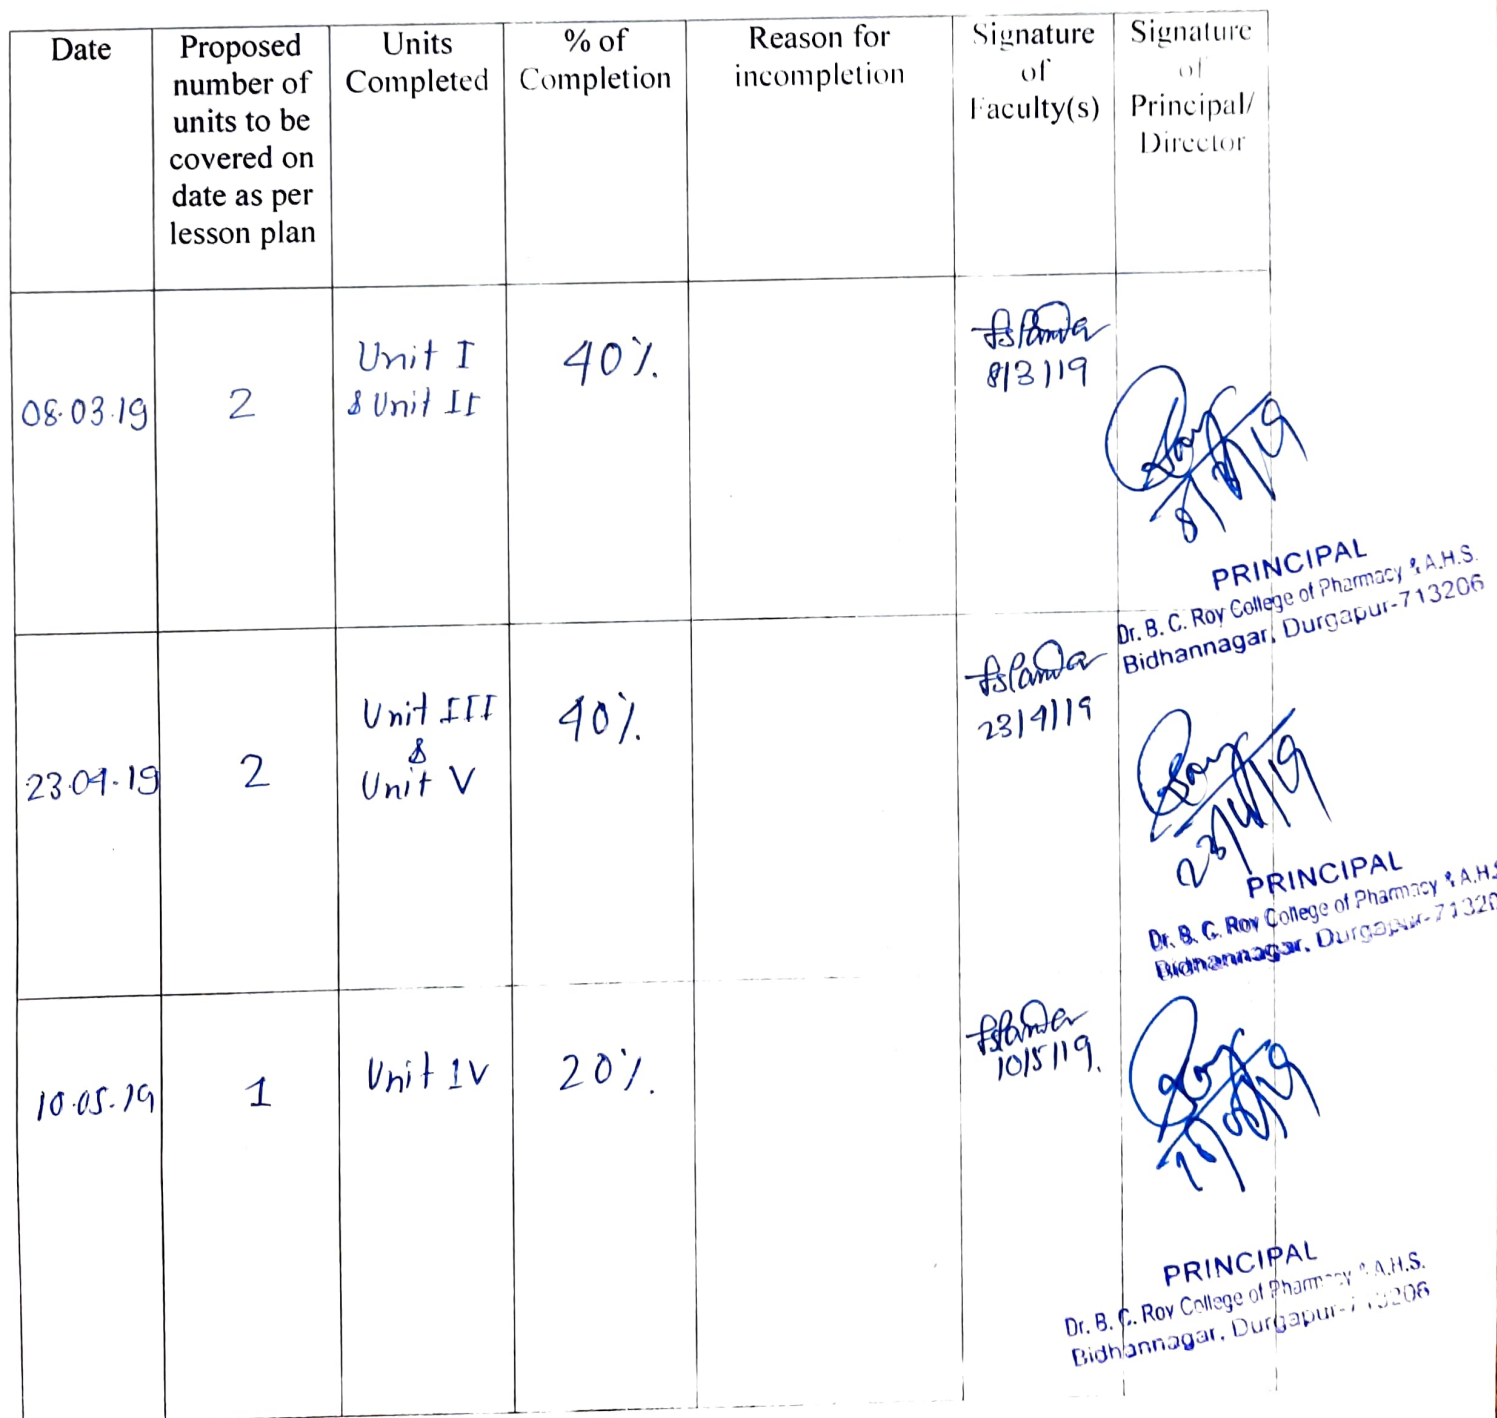 Date
Proposed
number of
units to be
covered on
date as per
lesson plan
Units
Completed
% of
Completion
Reason for
incompletion
Signature
of
Faculty(s)
Signature
of
Principal/
Director
08.03.19
2
Unit I
& Unit II
40%.
8/3/19
8/3/19
PRINCIPAL
Dr. B. C. Roy College of Pharmacy & A.H.S.
Bidhannagar, Durgapur-713206
23.04.19
2
Unit III
&
Unit V
40%.
23/4/19
23/4/19
PRINCIPAL
Dr. B. C. Roy College of Pharmacy & A.H.S
Bidhannagar, Durgapur-71320
10.05.19
1
Unit IV
20%.
10/5/19.
PRINCIPAL
Dr. B. C. Roy College of Pharmacy & A.H.S.
Bidhannagar, Durgapur-713206